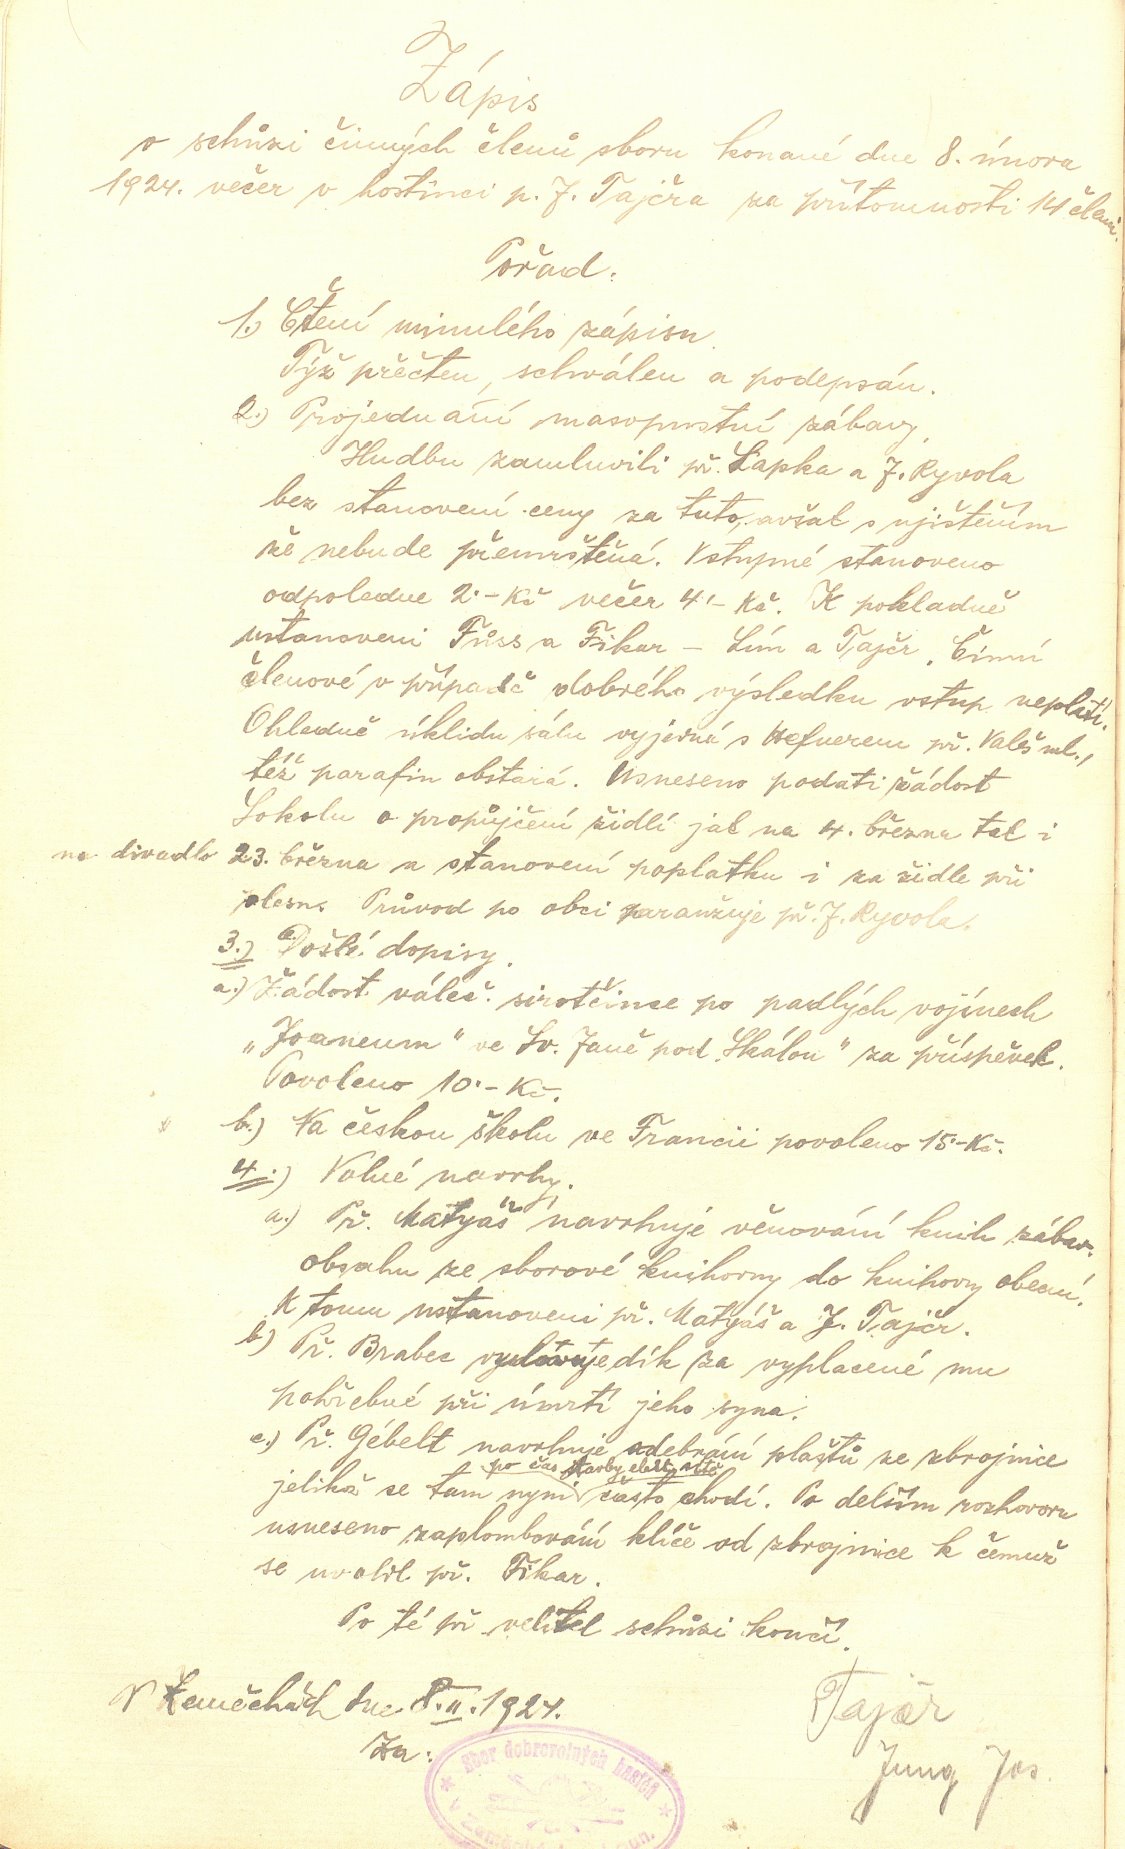 Zápis
o schůzi činných členů sboru konané dne 8. února
1924. večer v hostinci p. J. Tajčra za přítomnosti 14 členů.
Pořad:
1.) Čtení minulého zápisu.
Týž přečten, schválen a podepsán.
2.) Projednání masopustní zábavy.
Hudbu zamluvili př. Lapka a J. Ryvola
bez stanovení ceny za tuto, avšak s ujištěním
že nebude přemrštěná. Vstupné stanoveno
odpoledne 2·– Kč večer 4·– Kč. K pokladně
ustanoveni Füss a Fikar – Lím a Tajčr. Činní
členové v případě dobrého výsledku vstup neplatí.
Ohledně úklidu sálu vyjedná s Hefnerem př. Valeš ml.,
též parafin obstará. Usneseno podati žádost
Sokolu o propůjčení židlí jak na 4. března tak i
na divadlo 23. března a stanovení poplatku i za židle při
plesu. Průvod po obci zaranžuje př. J. Ryvola.
3.) Došlé dopisy.
a.) Žádost váleč. sirotčince po padlých vojínech
„Joaneum“ ve Sv. Janě pod „Skálou“ za příspěvek.
Povoleno 10·– Kč.
b.) Na českou školu ve Francii povoleno 15·– Kč.
4.) Volné návrhy.
a.) Př. Matyáš navrhuje věnování knih zábav.
obsahu ze sborové knihovny do knihovny obecní.
K tomu ustanoveni př. Matyáš a J. Tajčr.
b) Př. Brabec vyslovuje dík za vyplacené mu
pohřebné při úmrtí jeho syna.
c.) Př. Gébelt navrhuje odebrání plaštů ze zbrojnice
po čas stavby elekt. sítě
jelikož se tam nyní často chodí. Po delším rozhovoru
usneseno zaplombování klíče od zbrojnice k čemuž
se uvolil př. Fikar.
Po té př velitel schůzi končí.
V Zeměchách dne 8.II.1924.
Tajčr
Za:
Jung Jos.
Sbor dobrovolných hasičů
v Zeměchách